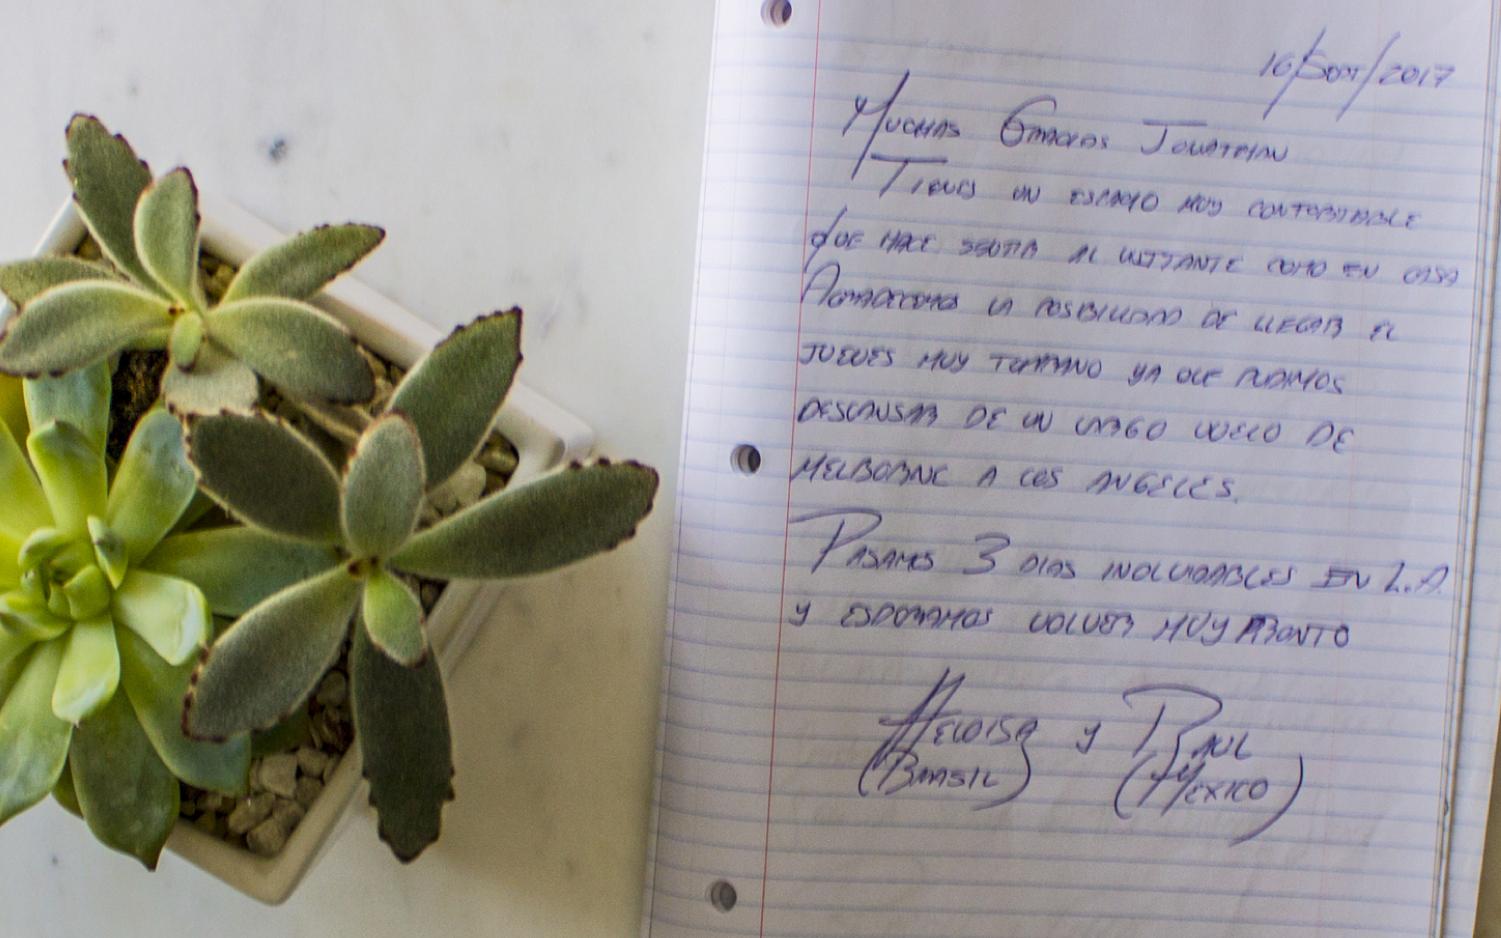 16/Sept/2017
Muchas Gracias Jonathan
Tienes un espacio muy confortable
que hace sentir al visitante como en casa
Agradecemos la posibilidad de llegar el
jueves muy temprano ya que pudimos
descansar de un largo vuelo de
Melborne a Los Angeles.
Pasamos 3 dias inolvidables en L.A.
y esperamos volver muy pronto
Heloisa y Raul
(Brasil) (Mexico)